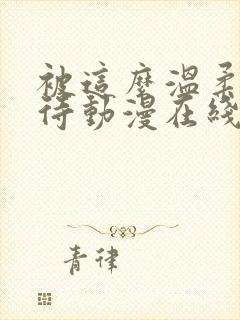 被這麼溫柔
待動漫在綫
青律